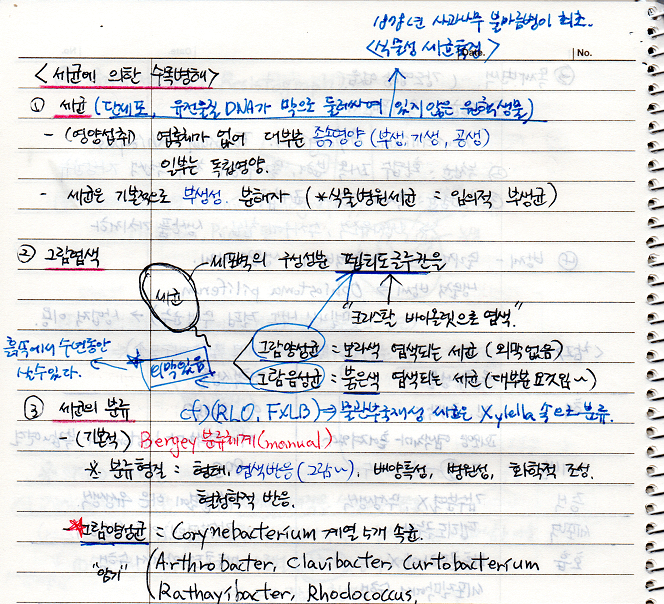 1898년 사과나무 불마름병이 최초..
<식물성 세균특징>
Date.
No.
<세균에 의한 수목병해>
① 세균 (단세포, 유전물질 DNA가 막으로 둘러싸여 있지 않은 원핵생물)
- (영양섭취) 엽록체가 없어 대부분 종속영양 (부생, 기생, 공생)
일부는 독립영양.
- 세균은 기본적으로 부생성. 분해자 (*식물병원세균 = 임의적 부생균)
② 그람염색
세포벽의 구성성분 펩티도글루칸을
세균
"크리스탈 바이올렛으로 염색."
흙속에서 수년동안
살수있다.
외막있음
그람양성균 = 보라색 염색되는 세균 (외막없음)
그람음성균 = 붉은색 염색되는 세균 (대부분 요것임~)
③ 세균의 분류
cf) (RLO, FXLB) → 물관부국재성 세균은 Xylella 속으로 분류.
- (기본적) Bergey 분류체계(manual)
※ 분류형질 = 형태, 염색반응(그람~), 배양특성, 병원성, 화학적 조성.
혈청학적 반응.
★그람양성균 = Corynebacterium 계열 5개 속균.
"암기" (Arthrobacter, Clavibacter, Curtobacterium
Rathayibacter, Rhodococcus,